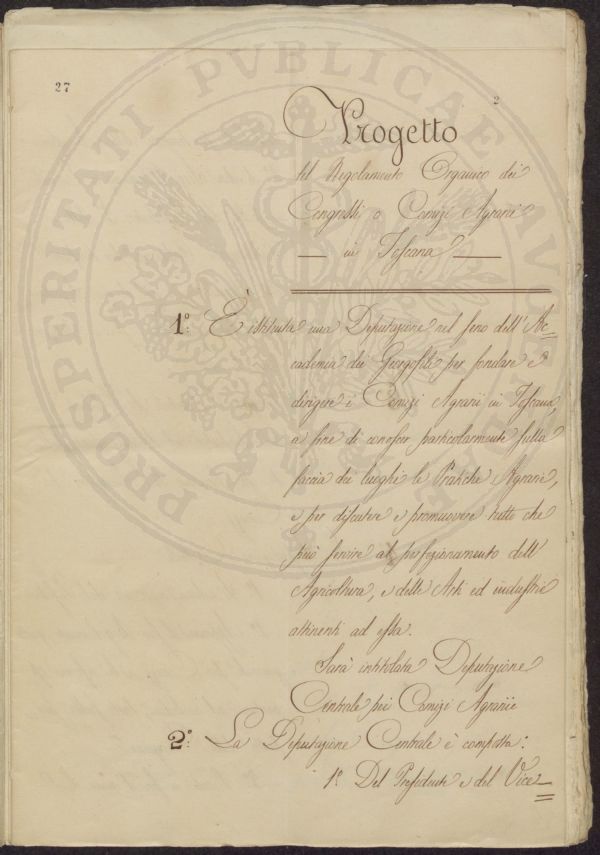 27
2
Progetto
del Regolamento Organico dei
Congressi o Comizi Agrarii
— in Toscana —
1º: È istituita una Deputazione nel seno dell'Ac=
cademia dei Georgofili per fondare e
dirigere i Comizi Agrarii in Toscana,
a fine di conoscer particolarmente sulla
faccia dei luoghi le Pratiche Agrarie,
e per discutere e promuovere tutto che
può servire al perfezionamento dell'
Agricoltura, e delle Arti ed industrie
attinenti ad essa.
Sarà intitolata Deputazione
Centrale pei Comizi Agrarii
2º: La Deputazione Centrale è composta:
1º. Del Presidente e del Vice=
PROSPERITATI PVBLICAE AVGENDAE